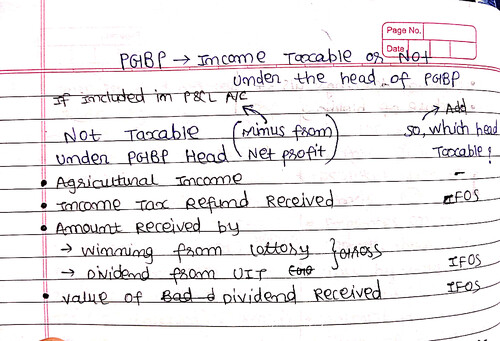 Page No.
Date
PGBP → Income Taxable or Not
under the head of PGBP
If included in P&L A/C
Add
Not Taxable (Minus from so, which head
under PGBP Head Net profit) Taxable?
• Agricultural Income -
• Income Tax Refund Received IFOS
• Amount Received by
→ Winning from lottery } Gross
→ Dividend from UTI IFOS
• Value of Bad d Dividend Received IFOS